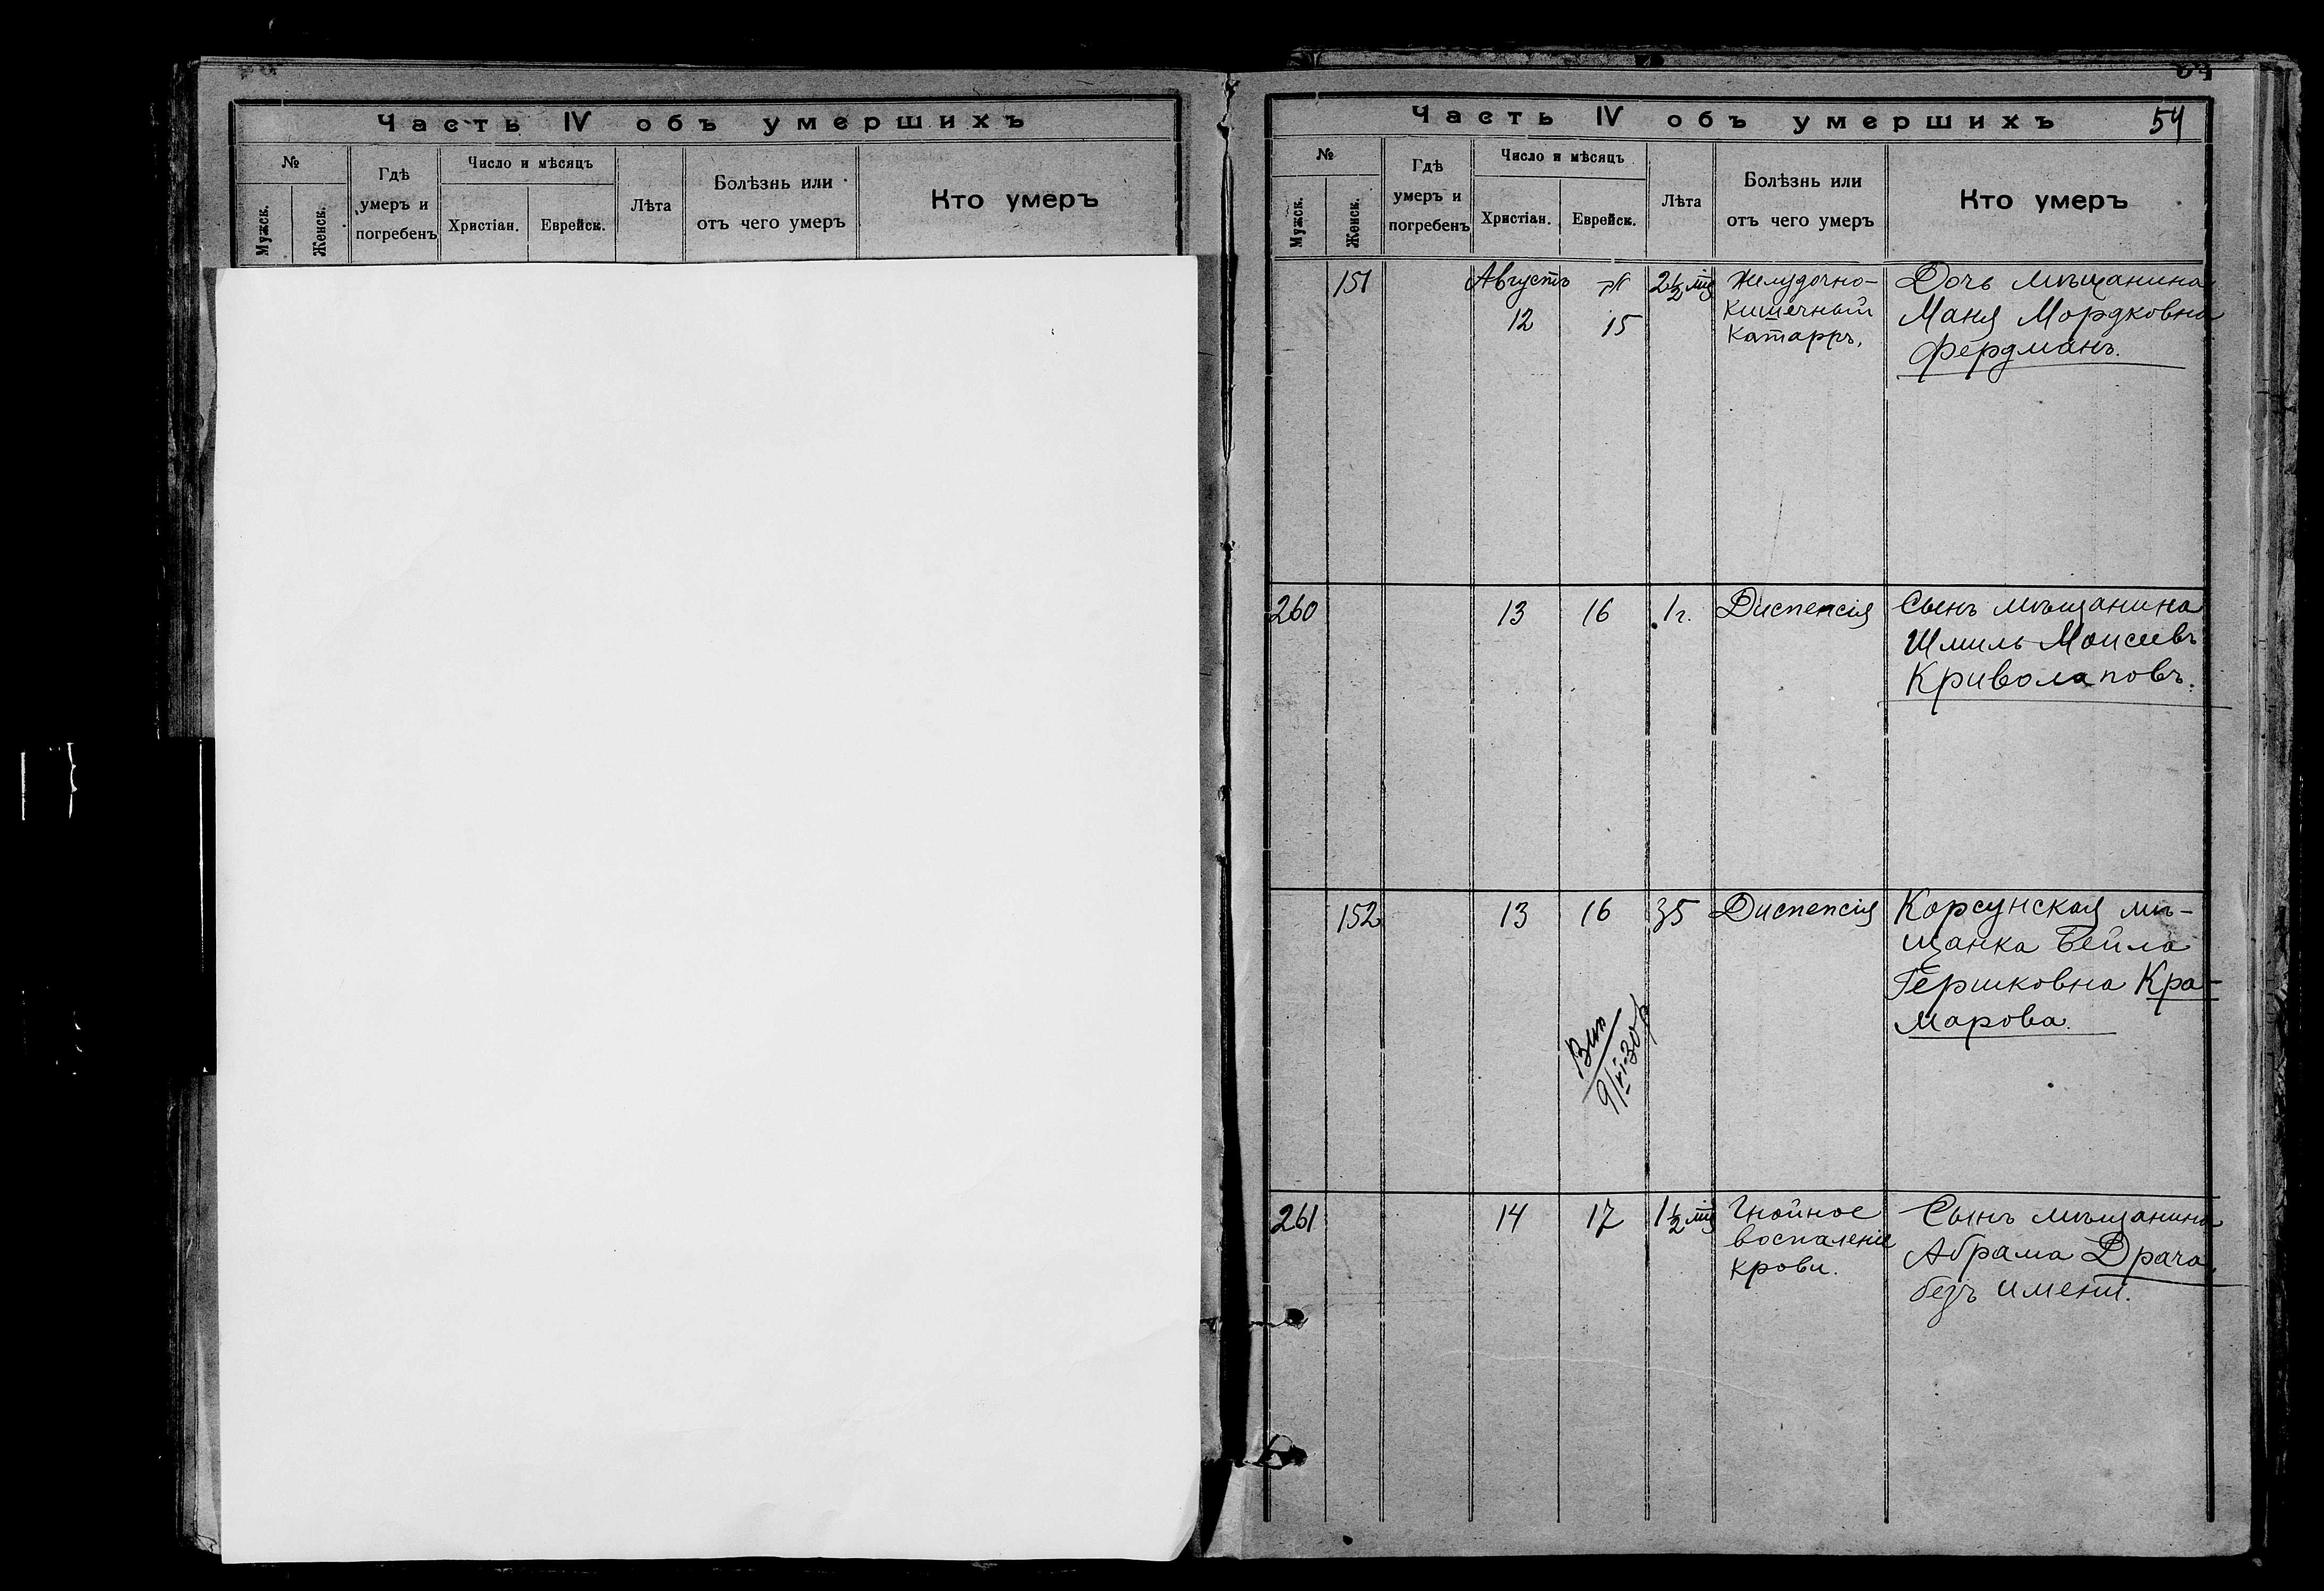 Часть IV объ умершихъ
№
Мужск.
Женск.
Гдѣ
умеръ и
погребенъ
Число и мѣсяцъ
Христіан.
Еврейск.
Лѣта
Болѣзнь или
отъ чего умеръ
Кто умеръ
Часть IV объ умершихъ
54
№
Мужск.
Женск.
Гдѣ
умеръ и
погребенъ
Число и мѣсяцъ
Христіан.
Еврейск.
Лѣта
Болѣзнь или
отъ чего умеръ
Кто умеръ
151
Августъ
12
15
2½
Желудочно-
кишечный
катарръ,
Дочь мѣщанина
Маня Мордковна
Фердманъ.
260
13
16
1 г.
Диспепсія
Сынъ мѣщанина
Шмиль Моисеевъ
Криволаповъ.
152
13
16
35
Диспепсія
Корсунская мѣ-
щанка Бейла
Гершковна Кра-
марова.
9/VI-30р
261
14
17
1½
Гнойное
воспаленіе
крови.
Сынъ мѣщанина
Абрама Драча,
безъ имени.